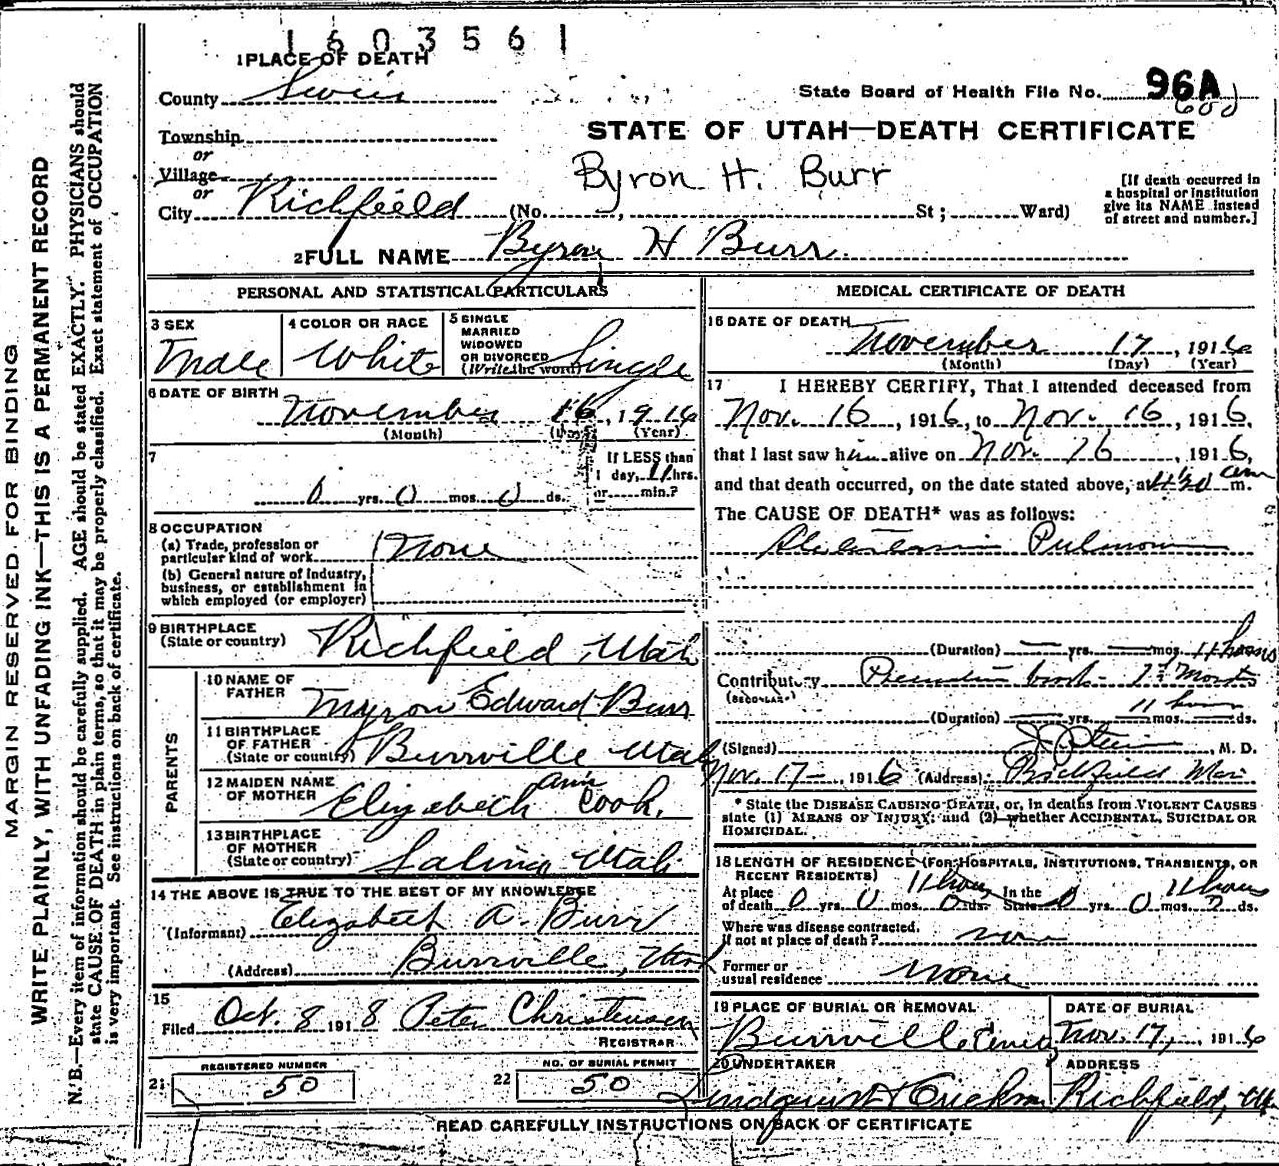 1603561
1 PLACE OF DEATH
County Sevier
State Board of Health File No. 96A
Township
or
STATE OF UTAH—DEATH CERTIFICATE
Village
or
Byron H. Burr
City Richfield (No. , St ; Ward)
[If death occurred in
a hospital or institution
give its NAME instead
of street and number.]
2 FULL NAME Byron H Burr.
PERSONAL AND STATISTICAL PARTICULARS
3 SEX
Male
4 COLOR OR RACE
White
5 SINGLE
MARRIED
WIDOWED
OR DIVORCED
(Write the word) Single
6 DATE OF BIRTH
November 16, 1916
(Month) (Day) (Year)
7
0 yrs. 0 mos. 0 ds.
If LESS than
1 day, 11 hrs.
or min.?
8 OCCUPATION
(a) Trade, profession or
particular kind of work None
(b) General nature of industry,
business, or establishment in
which employed (or employer)
9 BIRTHPLACE
(State or country) Richfield, Utah
PARENTS
10 NAME OF
FATHER Myron Edward Burr
11 BIRTHPLACE
OF FATHER
(State or country) Burrville Utah
12 MAIDEN NAME
OF MOTHER Elizabeth Ann Cook.
13 BIRTHPLACE
OF MOTHER
(State or country) Salina Utah
14 THE ABOVE IS TRUE TO THE BEST OF MY KNOWLEDGE
(Informant) Elizabeth A. Burr
(Address) Burrville, Utah
15
Filed Oct. 8 1918 Peter Christensen
REGISTRAR
REGISTERED NUMBER
21 50
NO. OF BURIAL PERMIT
22 50
MEDICAL CERTIFICATE OF DEATH
16 DATE OF DEATH
November 17, 1916
(Month) (Day) (Year)
17 I HEREBY CERTIFY, That I attended deceased from
Nov. 16, 1916, to Nov. 16, 1916,
that I last saw him alive on Nov. 16, 1916,
and that death occurred, on the date stated above, at 4:30 am m.
The CAUSE OF DEATH* was as follows:
(Duration) yrs. mos. 11 hours
Contributory
(SECONDARY)
11 hours
(Duration) yrs. mos. ds.
(Signed) M. D.
Nov. 17 1916 (Address) Richfield
* State the DISEASE CAUSING DEATH, or, in deaths from VIOLENT CAUSES
state (1) MEANS OF INJURY; and (2) whether ACCIDENTAL, SUICIDAL OR
HOMICIDAL.
18 LENGTH OF RESIDENCE (FOR HOSPITALS, INSTITUTIONS, TRANSIENTS, OR
RECENT RESIDENTS)
11 hours 11 hours
At place In the
of death 0 yrs. 0 mos. 0 ds. State 0 yrs. 0 mos. ds.
Where was disease contracted.
If not at place of death? none
Former or
usual residence None
19 PLACE OF BURIAL OR REMOVAL
Burrville
DATE OF BURIAL
Nov. 17, 1916
20 UNDERTAKER
Lindquist &
ADDRESS
Richfield, Ut.
READ CAREFULLY INSTRUCTIONS ON BACK OF CERTIFICATE
MARGIN RESERVED FOR BINDING
WRITE PLAINLY, WITH UNFADING INK—THIS IS A PERMANENT RECORD
N. B.—Every item of information should be carefully supplied. AGE should be stated EXACTLY. PHYSICIANS should
state CAUSE OF DEATH in plain terms, so that it may be properly classified. Exact statement of OCCUPATION
is very important. See instructions on back of certificate.